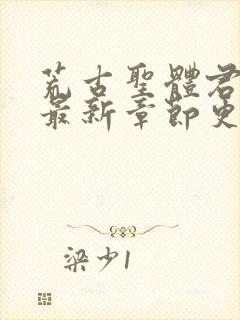 荒古聖體君
最新章節更
梁少1